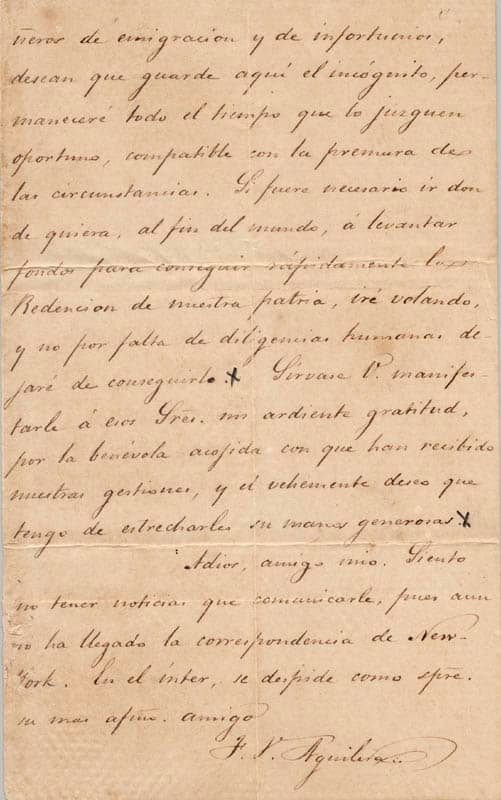 ñeros de emigracion y de infortunios,
desean que guarde aquí el incógnito, per-
maneceré todo el tiempo que lo juzguen
oportuno, compatible con la premura de
las circunstancias. Si fuere necesario ir don
de quiera, al fin del mundo, á levantar
fondos para conseguir rápidamente la
Redencion de nuestra patria, iré volando,
y no por falta de diligencias humanas de-
jaré de conseguirlo. X Sírvase V. manifes-
tarle á esos Sres. mi ardiente gratitud,
por la benévola acojida con que han recibido
nuestras gestiones, y el vehemente deseo que
tengo de estrecharles su manos generosas. X
Adios, amigo mio. Siento
no tener noticias que comunicarle, pues aun
no ha llegado la correspondencia de New-
York. En el ínter, se despide como spre.
su mas afmo. amigo
F. V. Aguilera